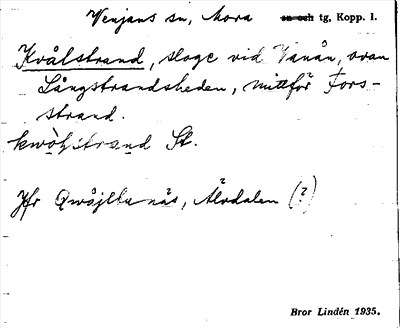 Venjans sn, Mora sn och tg, Kopp. l.
Kvålstrand, sloge vid Vanån, ovan
Långstrandsheden, mittför Fors-
strand.
kwòłstrand St.
Jfr Qwåjlbunäs, Älvdalen (?)
Bror Lindén 1935.